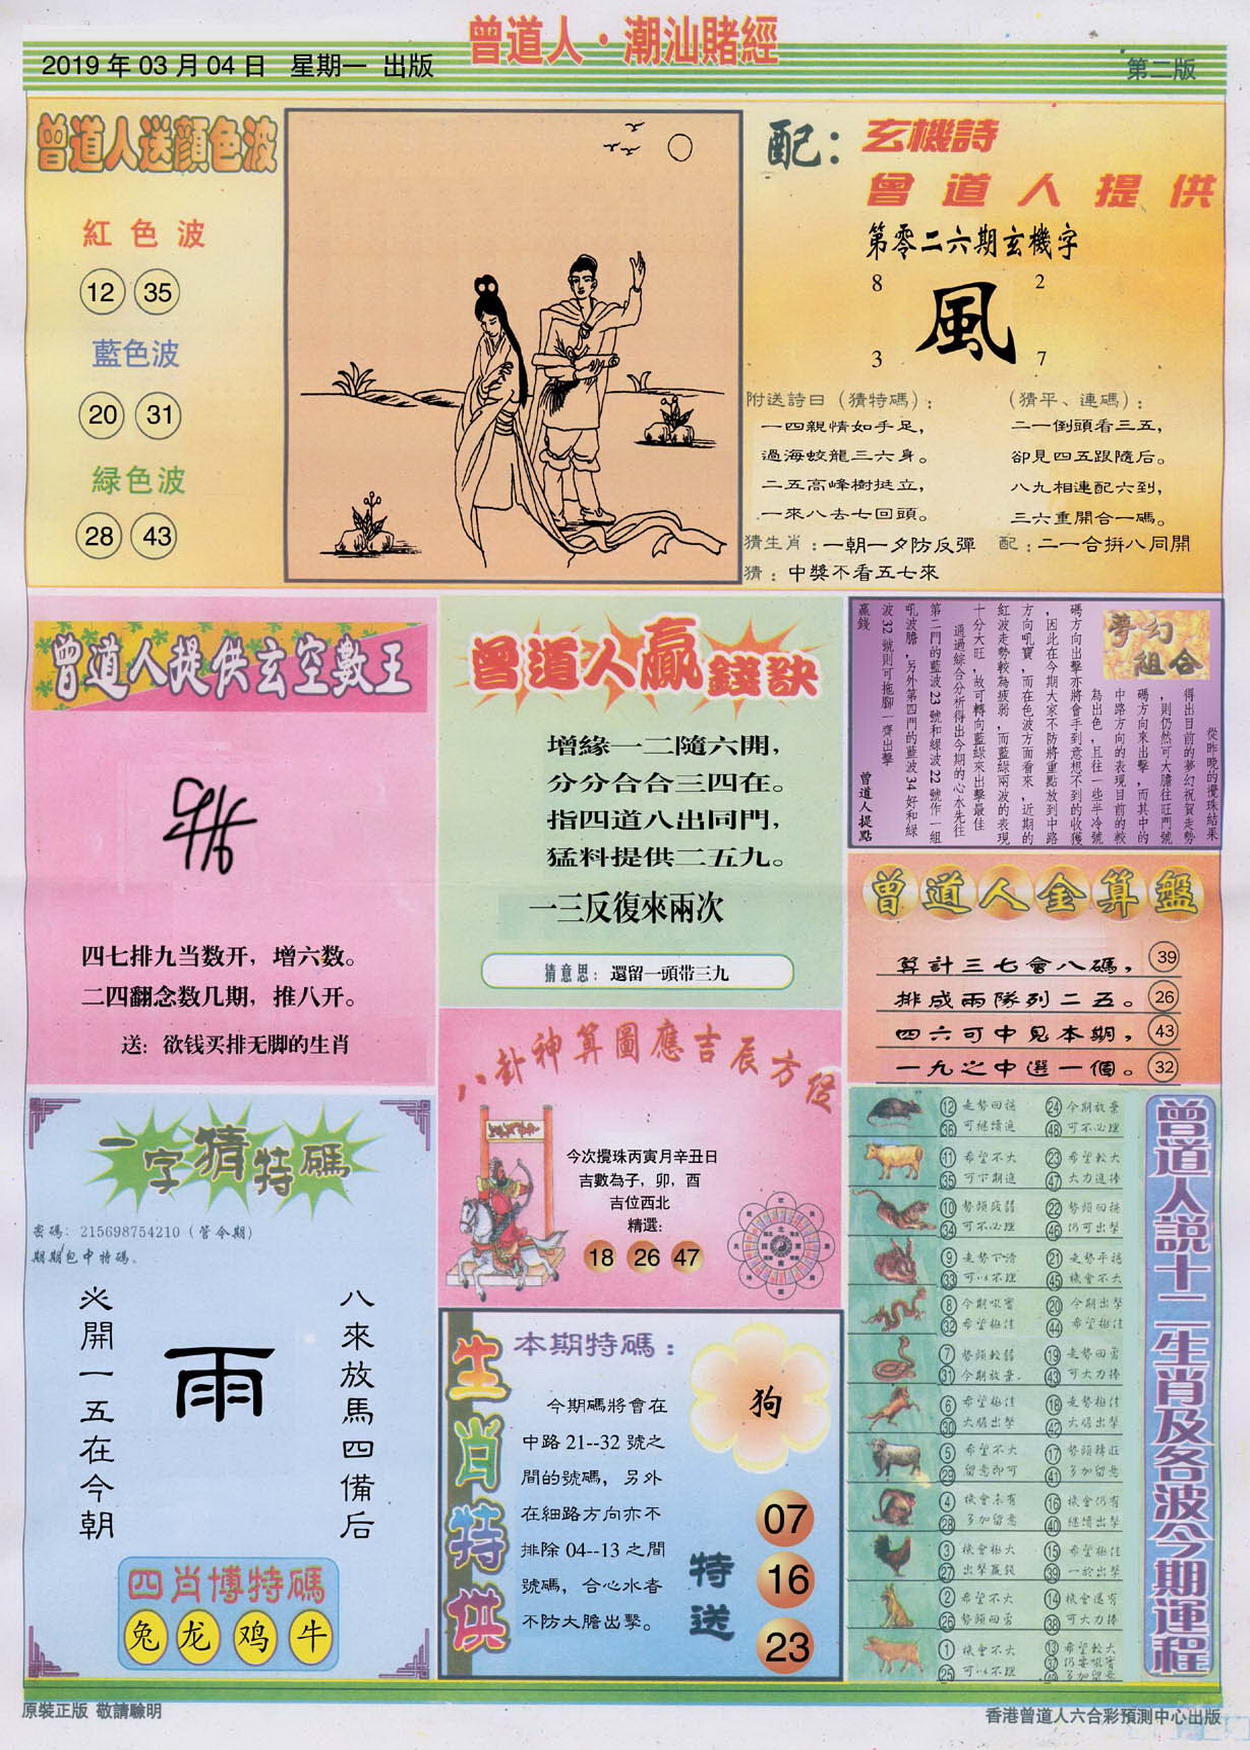 曾道人·潮汕賭經
2019年03月04日 星期一 出版
第二版
曾道人送顔色波
紅色波
12 35
藍色波
20 31
緑色波
28 43
配：玄機詩
曾道人提供
第零二六期玄機字
8 2
風
3 7
附送詩曰（猜特碼）：
一四親情如手足，
過海蛟龍三六身。
二五高峰樹挺立，
一來八去七回頭。
（猜平、連碼）：
二一倒頭看三五，
卻見四五跟隨后。
八九相連配六到，
三六重開合一碼。
猜生肖：一朝一夕防反彈 配：二一合拼八同開
猜：中獎不看五七來
曾道人提供玄空數王
四七排九当数开，增六数。
二四翻念数几期，推八开。
送：欲钱买排无脚的生肖
曾道人贏錢訣
增緣一二隨六開，
分分合合三四在。
指四道八出同門，
猛料提供二五九。
一三反復來兩次
猜意思：還留一頭带三九
夢幻組合
從昨晚的攪珠結果
得出目前的夢幻祝賀走勢
，則仍然可大膽往旺門號
碼方向來出擊，而其中的
中路方向的表現目前的較
為出色，且往一些半冷號
碼方向出擊亦將會手到意想不到的收獲
，因此在今期大家不防將重點放到中路
方向吼寶，而在色波方面看來，近期的
紅波走勢較為疲弱，而藍綠兩波的表現
十分大旺，故可轉向藍綠來出擊最佳
通過綜合分析得出今期的心水先往
第二門的藍波23號和綠波22號作一組
吼波膽，另外第四門的藍波34好和綠
波32號則可拖腳一齊出擊
贏錢
曾道人提點
曾道人金算盤
算計三七會八碼， 39
排成兩隊列二五。 26
四六可中見本期， 43
一九之中選一個。 32
八卦神算圖應吉辰方位
今次攪珠丙寅月辛丑日
吉數為子，卯，酉
吉位西北
精選：
18 26 47
一字猜特碼
密碼：215698754210（管今期）
期期包中特碼。
八來放馬四備后
雨
必開一五在今朝
四肖博特碼
兔 龙 鸡 牛
生肖特供
本期特碼：
狗
今期碼將會在
中路21--32號之
間的號碼，另外
在細路方向亦不
排除04--13之間
號碼，合心水者
不防大膽出擊。
特送
07
16
23
曾道人説十二生肖及各波今期運程
12 走勢回穩 24 今期放棄
36 可繼續追 48 可不必理
11 希望不大 23 希望較大
35 可下期追 47 大力追捧
10 勢頭疲弱 22 勢頭回穩
34 可不必理 46 仍可出擊
9 走勢下滑 21 走勢平穩
33 可以不理 45 機會不大
8 今期吼寶 20 今期出擊
32 希望極佳 44 希望極佳
7 勢頭較弱 19 走勢回勇
31 今期放棄. 43 可大力捧
6 希望極佳 18 走勢極佳
30 大膽出擊 42 大膽出擊
5 希望不大 17 勢頭轉旺
29 留意即可 41 多加留意
4 機會未有 16 機會仍有
28 多加留意 40 繼續出擊
3 機會極大 15 希望極佳
27 出擊贏錢 39 一於出擊
2 希望不大 14 機會還有
26 勢頭回勇 38 可大力捧
1 機會不大 13 希望較大
25 可以不理 37 仍要吼寶
49 多加留意
原裝正版 敬請驗明
香港曾道人六合彩預測中心出版